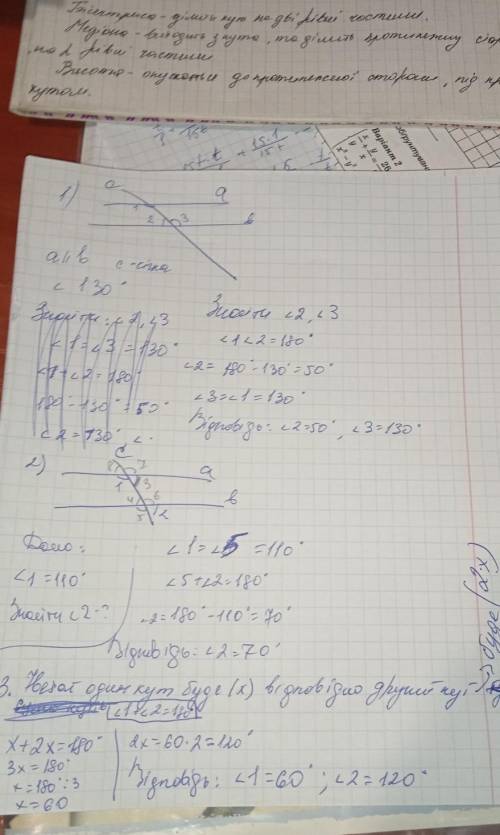 Бісектриса - ділить кут на дві рівні частини.
Медіана - виходить з кута, та ділить протилежну
на 2 рівні частини
Висота - опускається до протилежної сторони, під
кутом.
Варіант 2
1) c a
1 2 3 в
a ıı b c - січна
∠ 130°
Знайти: ∠2, ∠3
∠1 = ∠3 = 130°
∠1 + ∠2 = 180°
180° - 130° = 50°
∠2 = 130°, ∠.
Знайти ∠2, ∠3
∠1 ∠2 = 180°
∠2 = 180° - 130° = 50°
∠3 = ∠1 = 130°
Відповідь: ∠2 = 50°, ∠3 = 130°
2) c a
1 3
4 6 в
5 2
Дано:
∠1 = 110°
Знайти ∠2 - ?
∠1 = ∠5 = 110°
∠5 + ∠2 = 180°
∠2 = 180° - 110° = 70°
Відповідь: ∠2 = 70°
3. Нехай один кут буде (x) відповідно другий кут
→ буде (2x)
∠1 + ∠2 = 180°
x + 2x = 180°
3x = 180°
x = 180° : 3
x = 60
2x = 60 · 2 = 120°
Відповідь: ∠1 = 60° ; ∠2 = 120°